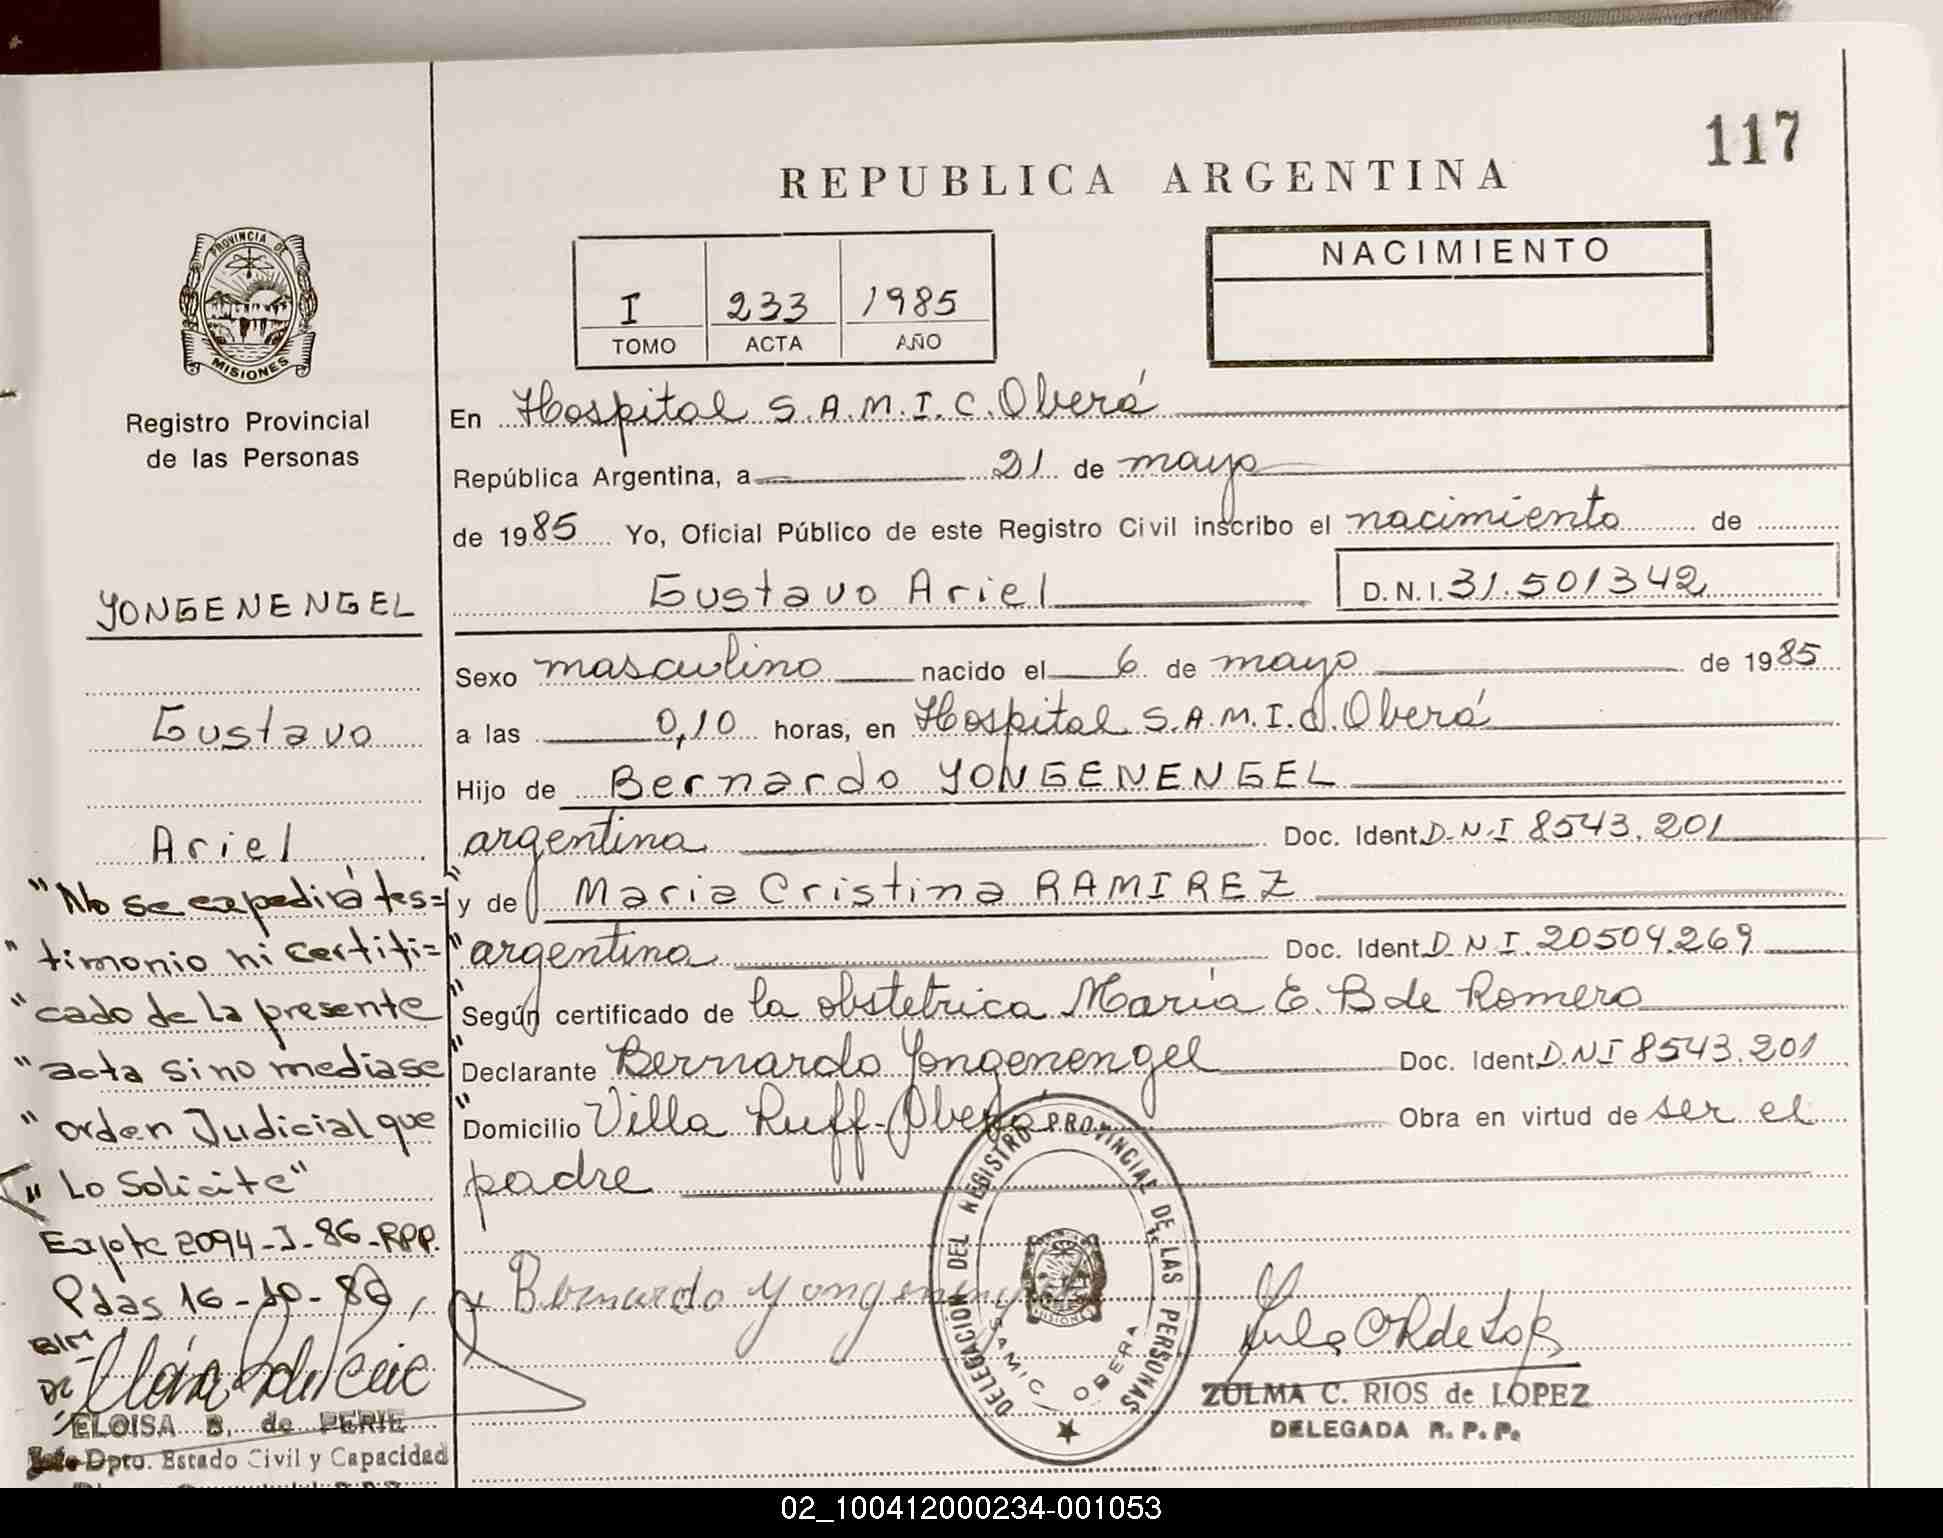 117
REPUBLICA ARGENTINA
PROVINCIA DE
MISIONES
Registro Provincial
de las Personas
I 233 1985
TOMO ACTA AÑO
NACIMIENTO
En Hospital S.A.M.I.C. Oberá
República Argentina, a 21 de mayo
de 1985 Yo, Oficial Público de este Registro Civil inscribo el nacimiento de
Gustavo Ariel D.N.I. 31.501342
Sexo masculino nacido el 6 de mayo de 1985
a las 0,10 horas, en Hospital S.A.M.I.C. Oberá
Hijo de Bernardo YONGENENGEL
argentina Doc. Ident. D-N-I 8543.201
y de Maria Cristina RAMIREZ
argentina Doc. Ident. D N I. 20504.269
Según certificado de la obstetrica María E. B de Romero
Declarante Bernardo Yongenengel Doc. Ident. D.N I 8543.201
Domicilio Villa Ruff-Oberá Obra en virtud de ser el
padre
YONGENENGEL
Gustavo
Ariel
"No se expedirá tes="
"timonio ni certifi="
"cado de la presente"
"acta sino mediase"
"orden Judicial que"
"Lo Solicite"
Expte 2094-J-86-RPP.
Pdas 16-10-86,
ELOISA B. de PERIE
Dpto. Estado Civil y Capacidad
Bernardo
DELEGACION DEL REGISTRO PROVINCIAL DE LAS PERSONAS
MISIONES
SAMIC OBERA
ZULMA C. RIOS de LOPEZ
DELEGADA R. P. P.
02_100412000234-001053